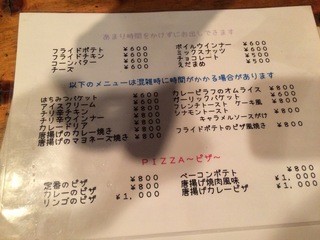 あまり時間をかけずにお出しできます
フライドポテト ¥600
フライドチキン ¥600
コーンバター ¥600
チーズ ¥600
ボイルウインナー ¥600
ミックスナッツ ¥600
チョコレート ¥500
えだまめ ¥500
以下のメニューは混雑時に時間がかかる場合があります
はちみつバゲット
アイスクリーム
チリ辛チキン
チリ辛ウインナー
カレードリア ¥800
唐揚げのカレー焼き ¥800
唐揚げのマヨネーズ焼き ¥800
カレーピラフのオムライス ¥800
ガーリックバゲット ¥600
フレンチトースト ケーキ風
シナモントースト ¥600
キャラメルソースがけ
フライドポテトのピザ風焼き ¥800
PIZZA～ピザ～
定番のピザ ¥800
カレーのピザ ¥800
リンゴのピザ ¥1,000
ベーコンポテト ¥800
唐揚げ焼肉風味 ¥1,000
唐揚げカレーピザ ¥1,000